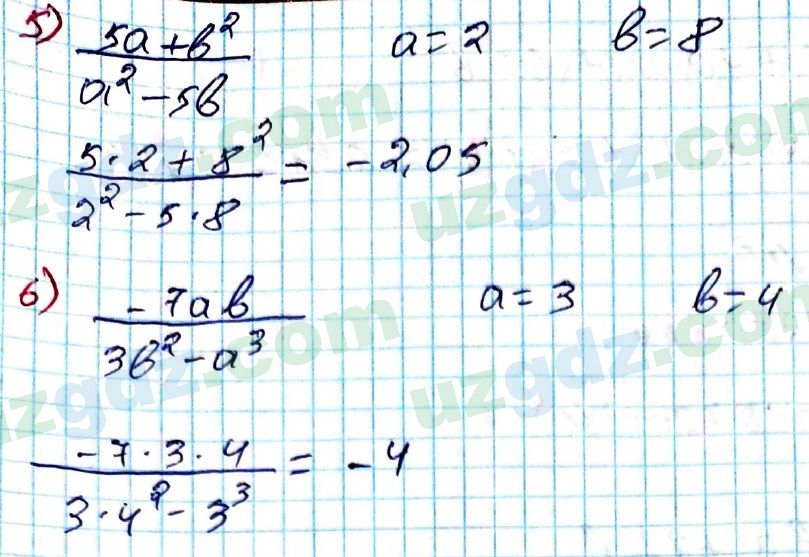 5) (5a + b²)/(a² - 5b)   a = 2   b = 8
(5·2 + 8²)/(2² - 5·8) = -2,05
6) (-7ab)/(3b² - a³)   a = 3   b = 4
(-7·3·4)/(3·4² - 3³) = -4
uzgdz.com
uzgdz.com
uzgdz.com
uzgdz.com